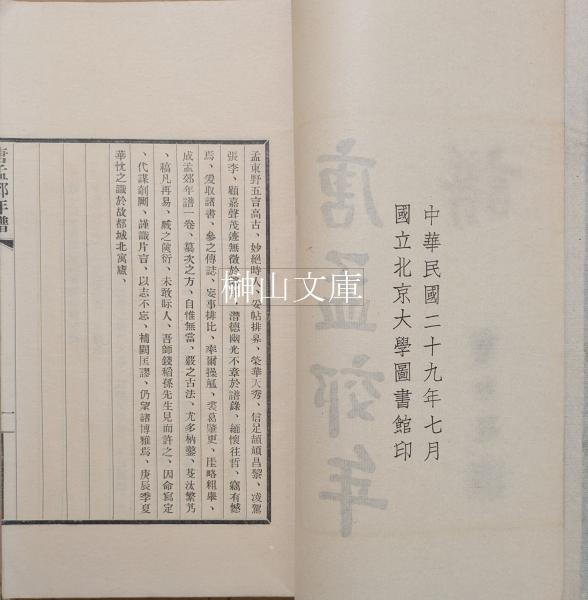 中華民國二十九年七月
國立北京大學圖書館印
唐孟郊年
孟東野五言高古、妙絕時人、妥帖排奡、榮華天秀、信足頡頏昌黎、凌駕
張李、顧嘉聲茂迹無徵於
潛德幽光不章於譜錄、緬懷往哲、竊有憾
焉、爰取諸書、參之傳誌、妄事排比、率爾操觚、裘葛肇更、厓略粗舉、
成孟郊年譜一卷、纂次之方、自惟無當、嚴之古法、尤多枘鑿、芟汰繁芿
、稿凡再易、臧之篋衍、未敢眎人、吾師錢稻孫先生見而許之、因命寫定
、代謀剞劂、謹識片言、以志不忘、補闕匡謬、仍望諸博雅焉、庚辰季夏
華忱之識於故都城北寓廬、
唐孟郊年譜
一
榊山文庫